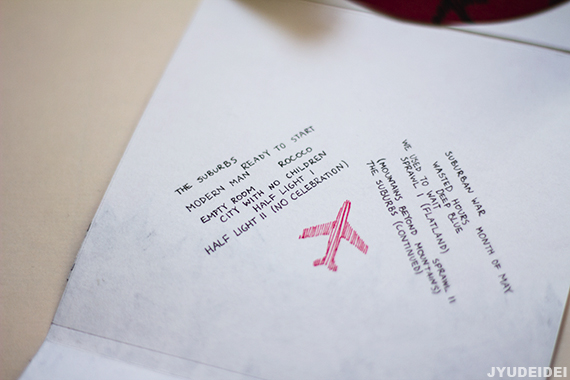 THE SUBURBS READY TO START
MODERN MAN ROCOCO
EMPTY ROOM
CITY WITH NO CHILDREN
HALF LIGHT I
HALF LIGHT II (NO CELEBRATION)
SUBURBAN WAR MONTH OF MAY
WASTED HOURS
DEEP BLUE
WE USED TO WAIT
SPRAWL I (FLATLAND)
SPRAWL II
(MOUNTAINS BEYOND MOUNTAINS)
THE SUBURBS (CONTINUED)
JYUDEIDEI